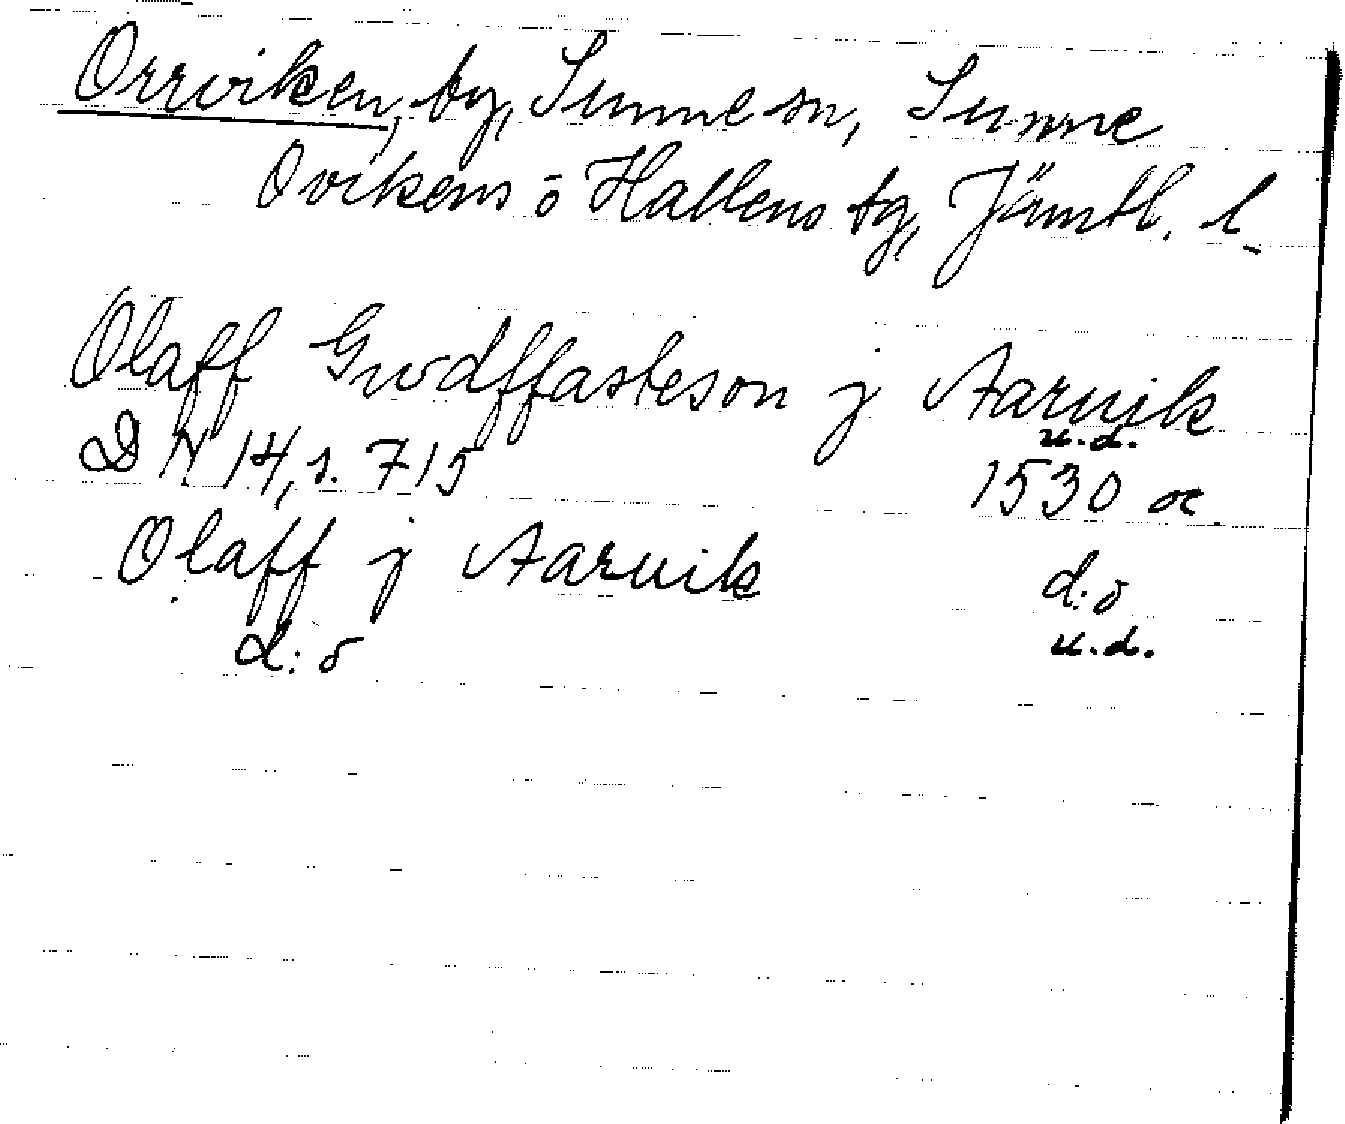 Orrviken, by, Sunne sn, Sunne
Ovikens o Hallens tg, Jämtl. l.
Olaff Gwdffasteson j Aarvik
u.d.
DN 14, s. 715 1530 oc
Olaff j Aarvik d:o
d:o u.d.